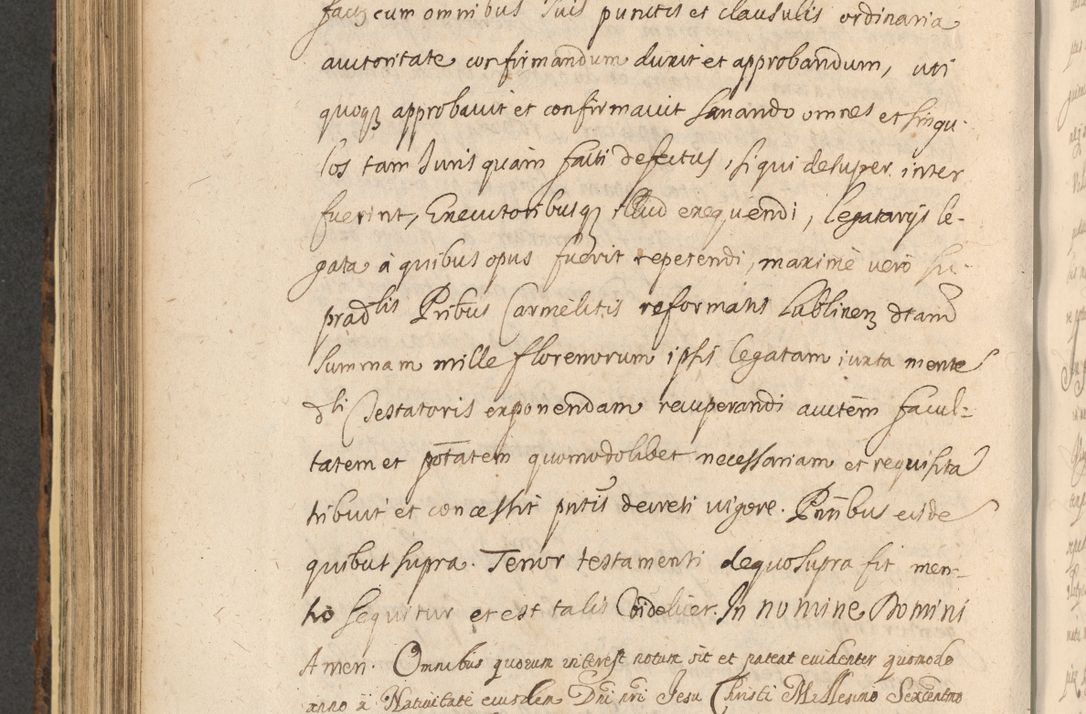 factz cum omnibus suis punctis et clausulis ordinaria
auctoritate confirmandum duxit et approbandum, uti
quoqz approbavit et confirmavit sanando omnes et singu-
los tam Juris quàm facti defectus, si qui desuper inter
fuerint, Executoribusqz illud exequendi, legatarijs le-
gata à quibus opus fuerit repetendi, maximè verò su-
pradlis Pribus Carmelitis reformatis Lublinenz dtam
summam mille florenorum ipsis legatam iuxta mente
dli Testatoris exponendam recuperandi autem facul-
tatem et ptatem quomodolibet necessariam et requisita
tribuit et concessit pntis decreti vigore. Pntibus eisde
quibus supra. Tenor testamenti de quo supra fit men-
tio sequitur et est talis Videlicet. In nomine Domini
Amen. Omnibus quorum interest notum sit et pateat evidenter quomodo
anno à Nativitate eiusdem Dni nri Jesu Christi Millesimo Sexcentmo